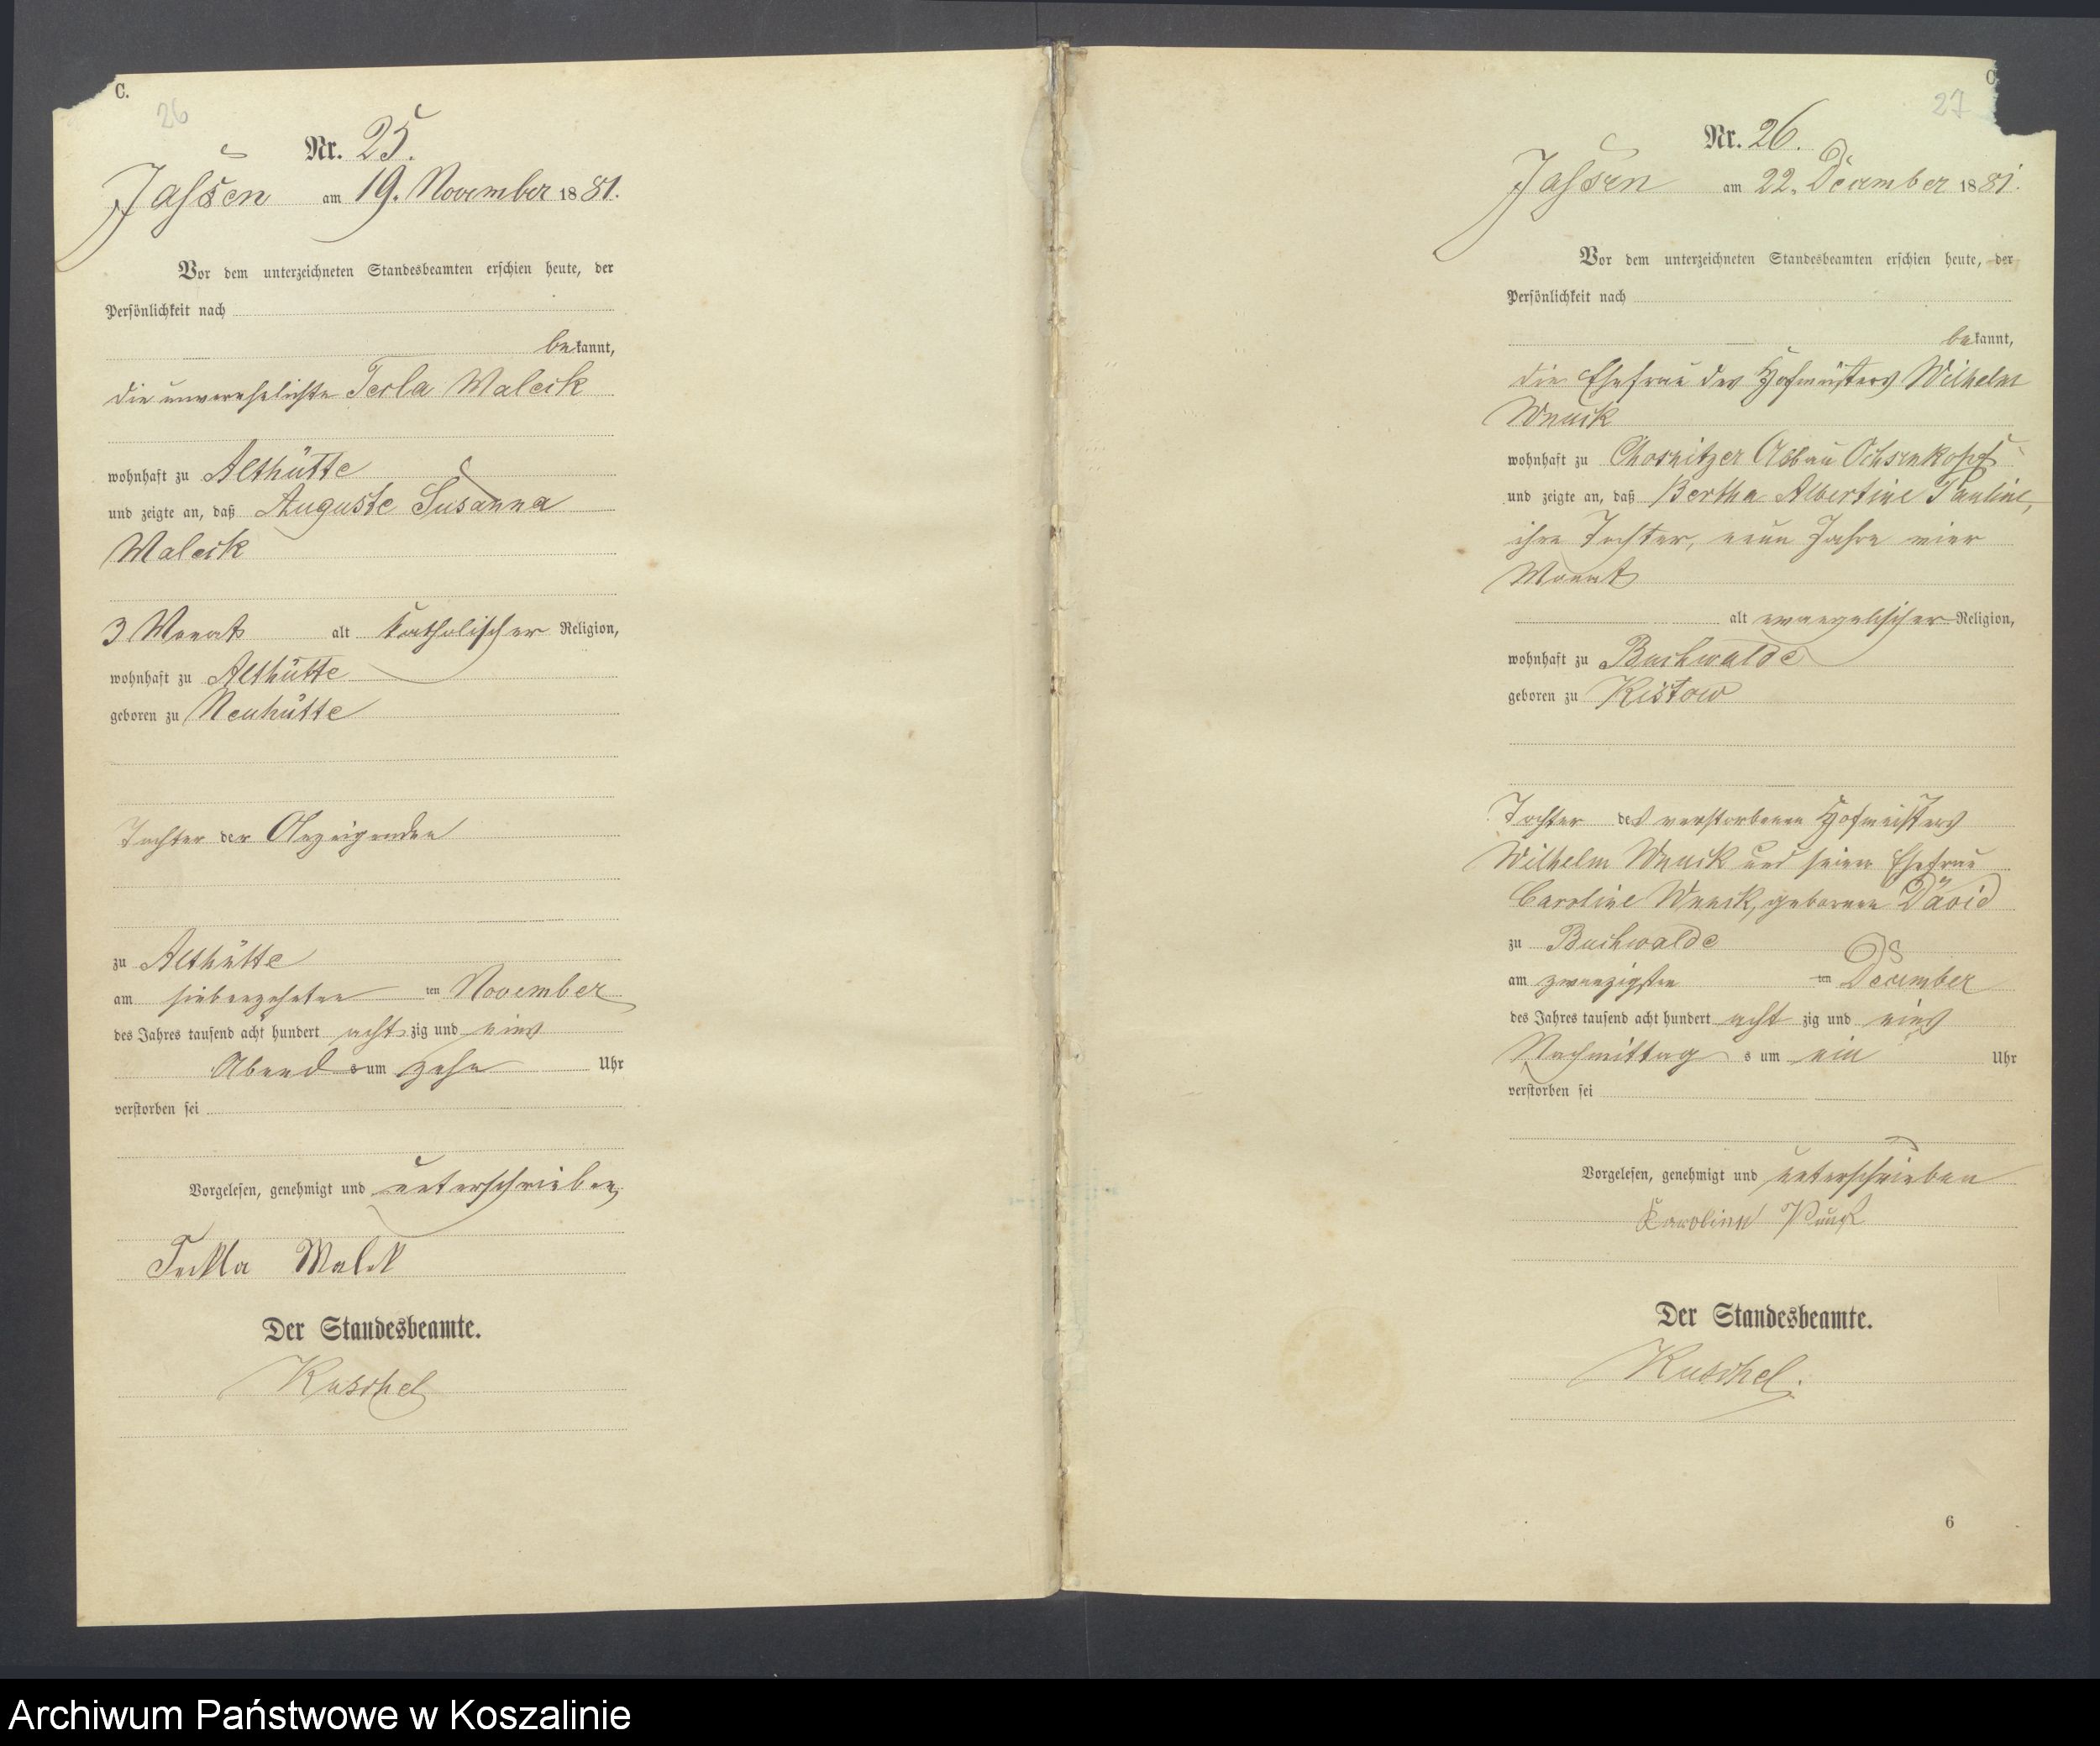 C.
26
Nr. 25.
Jassen am 19. November 1881.
Vor dem unterzeichneten Standesbeamten erschien heute, der
Persönlichkeit nach
bekannt,
die unverehelichte Tecla Waleck
wohnhaft zu Althütte
und zeigte an, daß Auguste Susanna
Waleck
3 Monat alt katholischer Religion,
wohnhaft zu Althütte
geboren zu Neuhütte
Tochter der Anzeigenden
zu Althütte
am siebenzehnten ten November
des Jahres tausend acht hundert acht zig und eins
Abend s um zehn Uhr
verstorben sei
Vorgelesen, genehmigt und unterschrieben
Tekla Walek
Der Standesbeamte.
Kuschel
C.
27
Nr. 26.
Jassen am 22. December 1881.
Vor dem unterzeichneten Standesbeamten erschien heute, der
Persönlichkeit nach
bekannt,
die Ehefrau des Hofmeisters Wilhelm
Wnuck
wohnhaft zu Chosnitzer Abbau Ochsenkopf
und zeigte an, daß Bertha Albertine Pauline,
ihre Tochter, neun Jahre vier
Monat
alt evangelischer Religion,
wohnhaft zu Buchwalde
geboren zu Kistow
Tochter des verstorbenen Hofmeisters
Wilhelm Wnuck und seiner Ehefrau
Caroline Wnuck, geborenen David
zu Buchwalde
am zwanzigsten ten December
des Jahres tausend acht hundert acht zig und eins
Nachmittag s um ein Uhr
verstorben sei
Vorgelesen, genehmigt und unterschrieben
Karoline
Der Standesbeamte.
Kuschel.
6
Archiwum Państwowe w Koszalinie